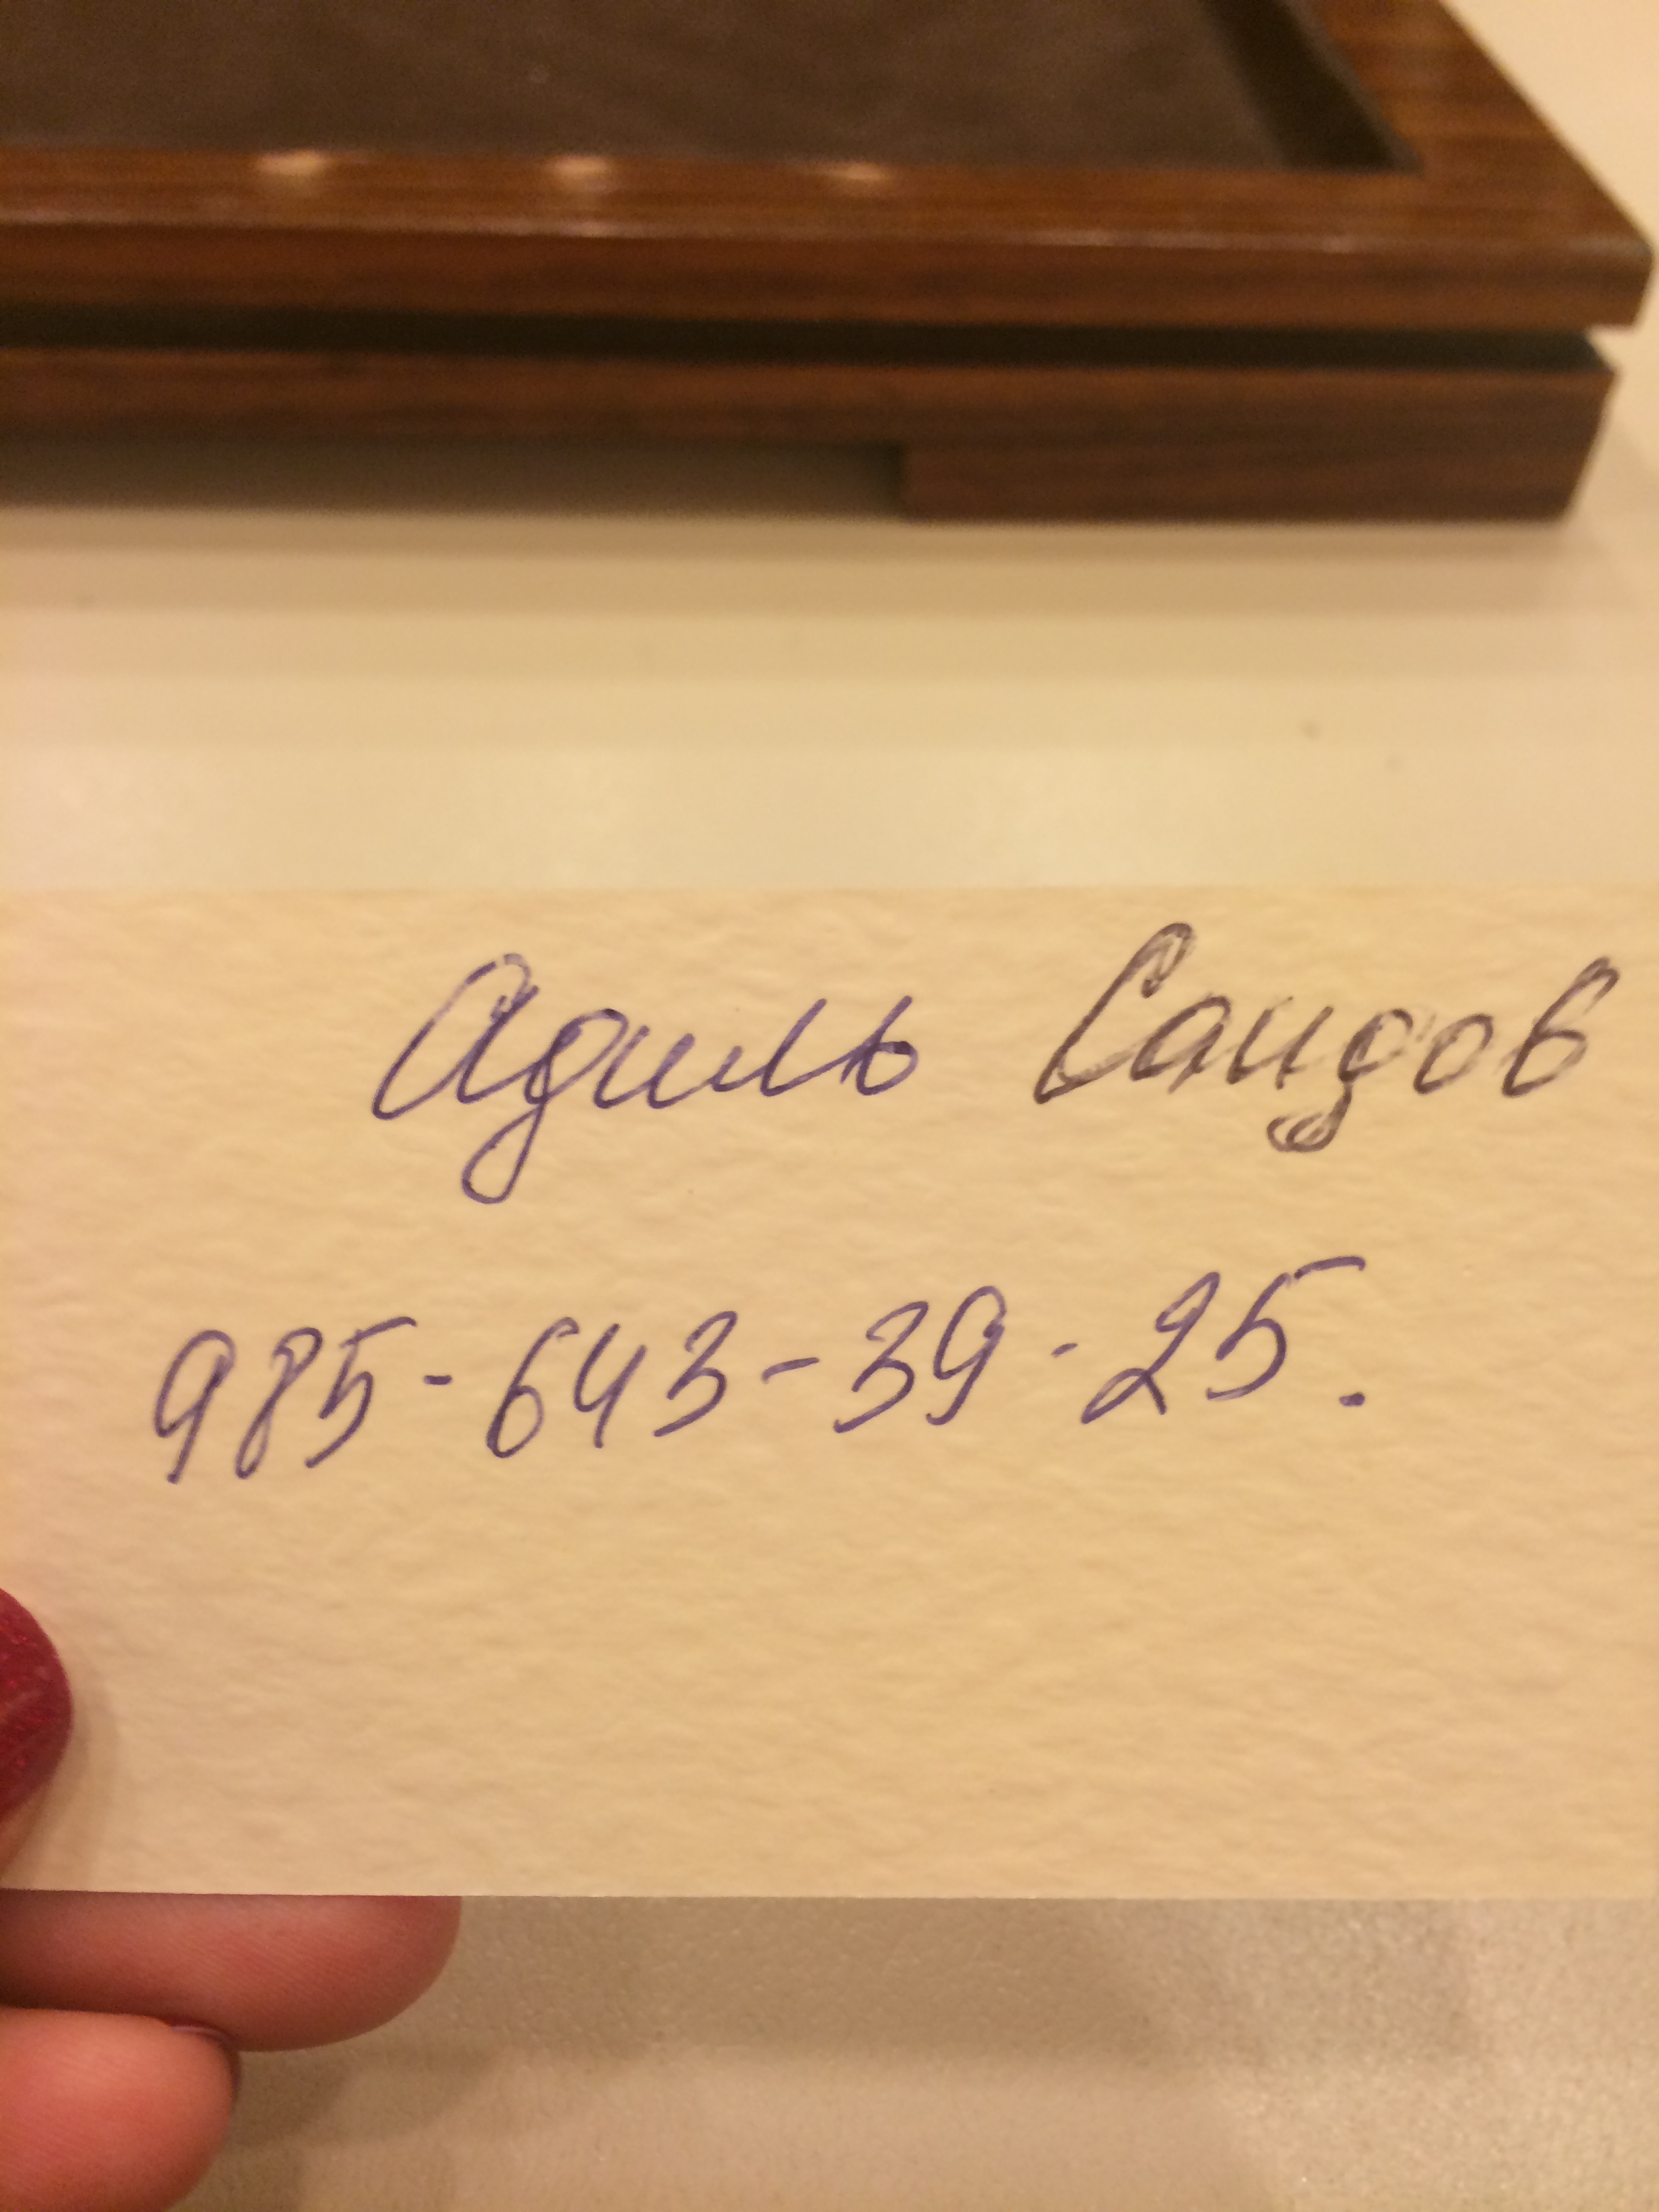 Адиль Саидов
985-643-39-25.